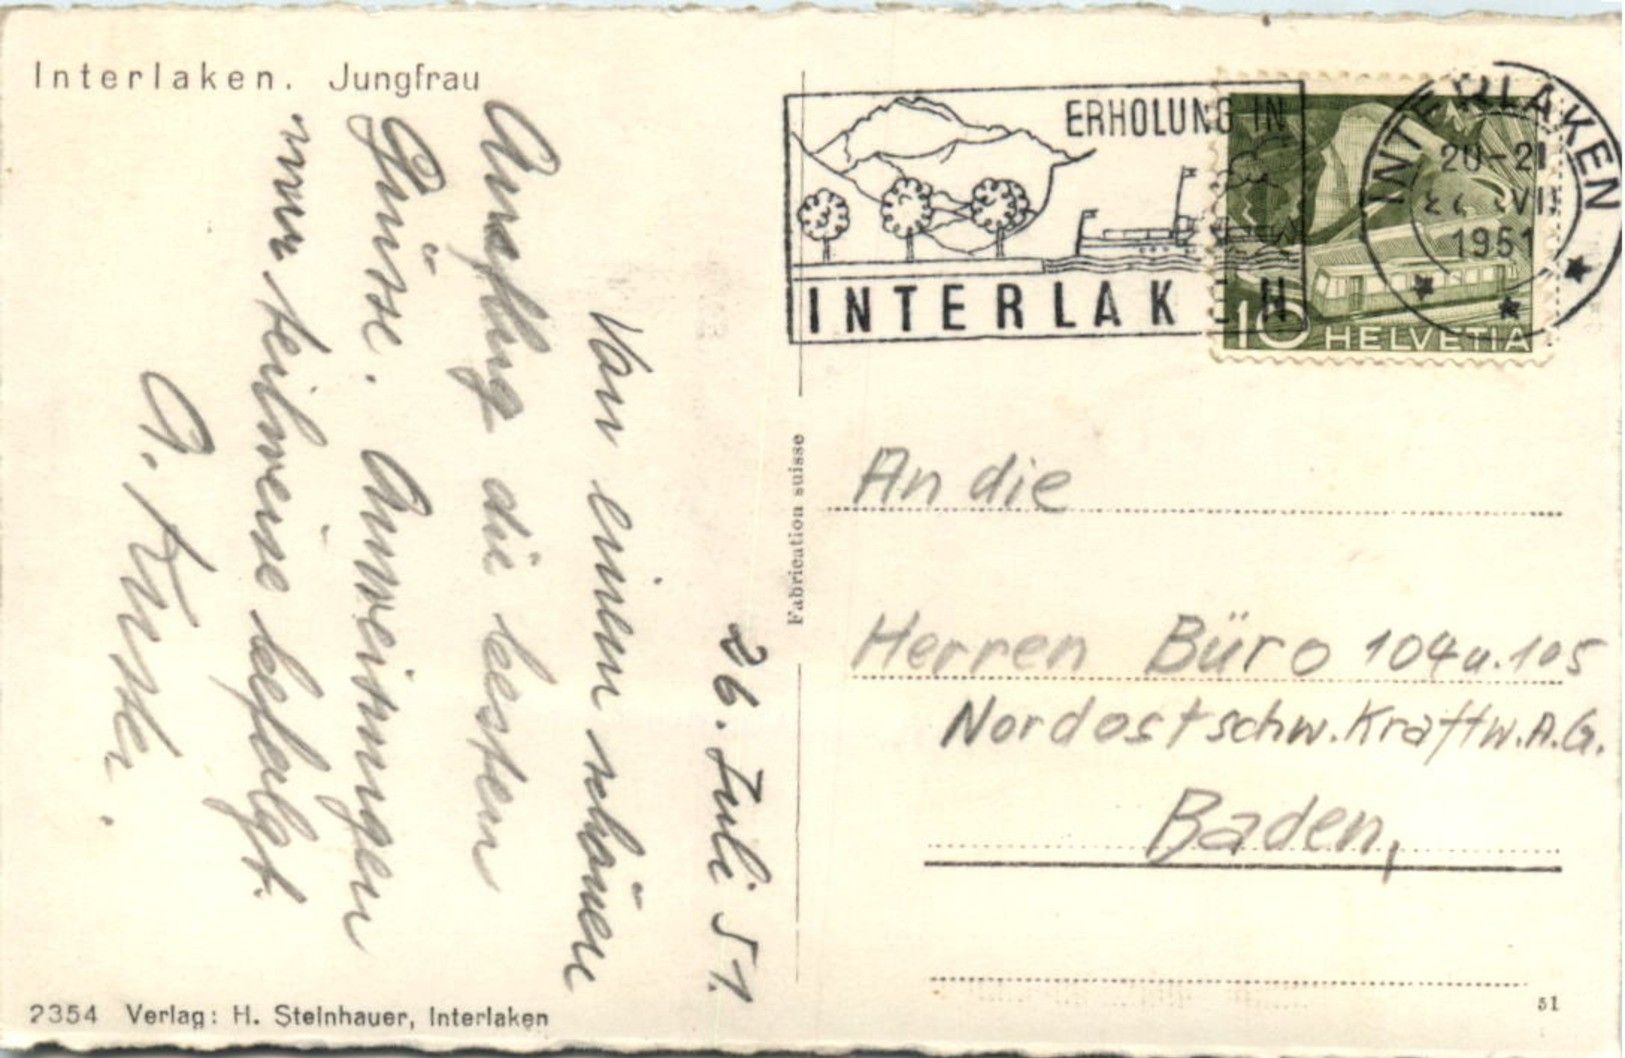 Interlaken. Jungfrau
ERHOLUNG IN
INTERLAKEN
INTERLAKEN
20-21
VII
1951
10 HELVETIA
26. Juli 51.
Von einem schönen
Ausflug die besten
Grüsse. Anweisungen
nur teilweise befolgt.
A. Kuster.
Fabrication suisse
An die
Herren Büro 104 u. 105
Nordostschw. Kraftw. A.G.
Baden,
2354 Verlag: H. Steinhauer, Interlaken
51